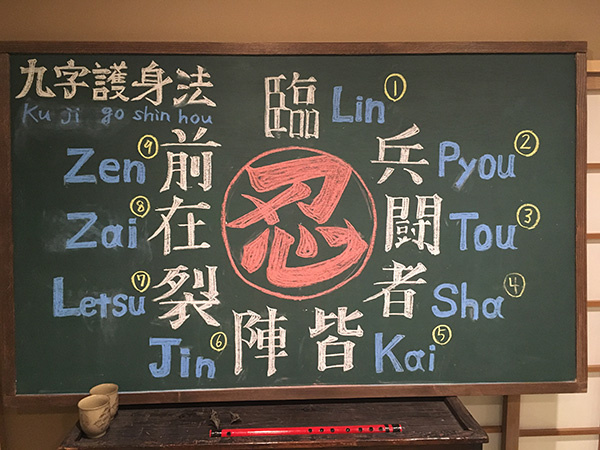 九字護身法
Ku ji go shin hou
臨 Lin ①
兵 Pyou ②
闘 Tou ③
者 Sha ④
皆 Kai ⑤
陣 Jin ⑥
裂 Letsu ⑦
在 Zai ⑧
前 Zen ⑨
忍